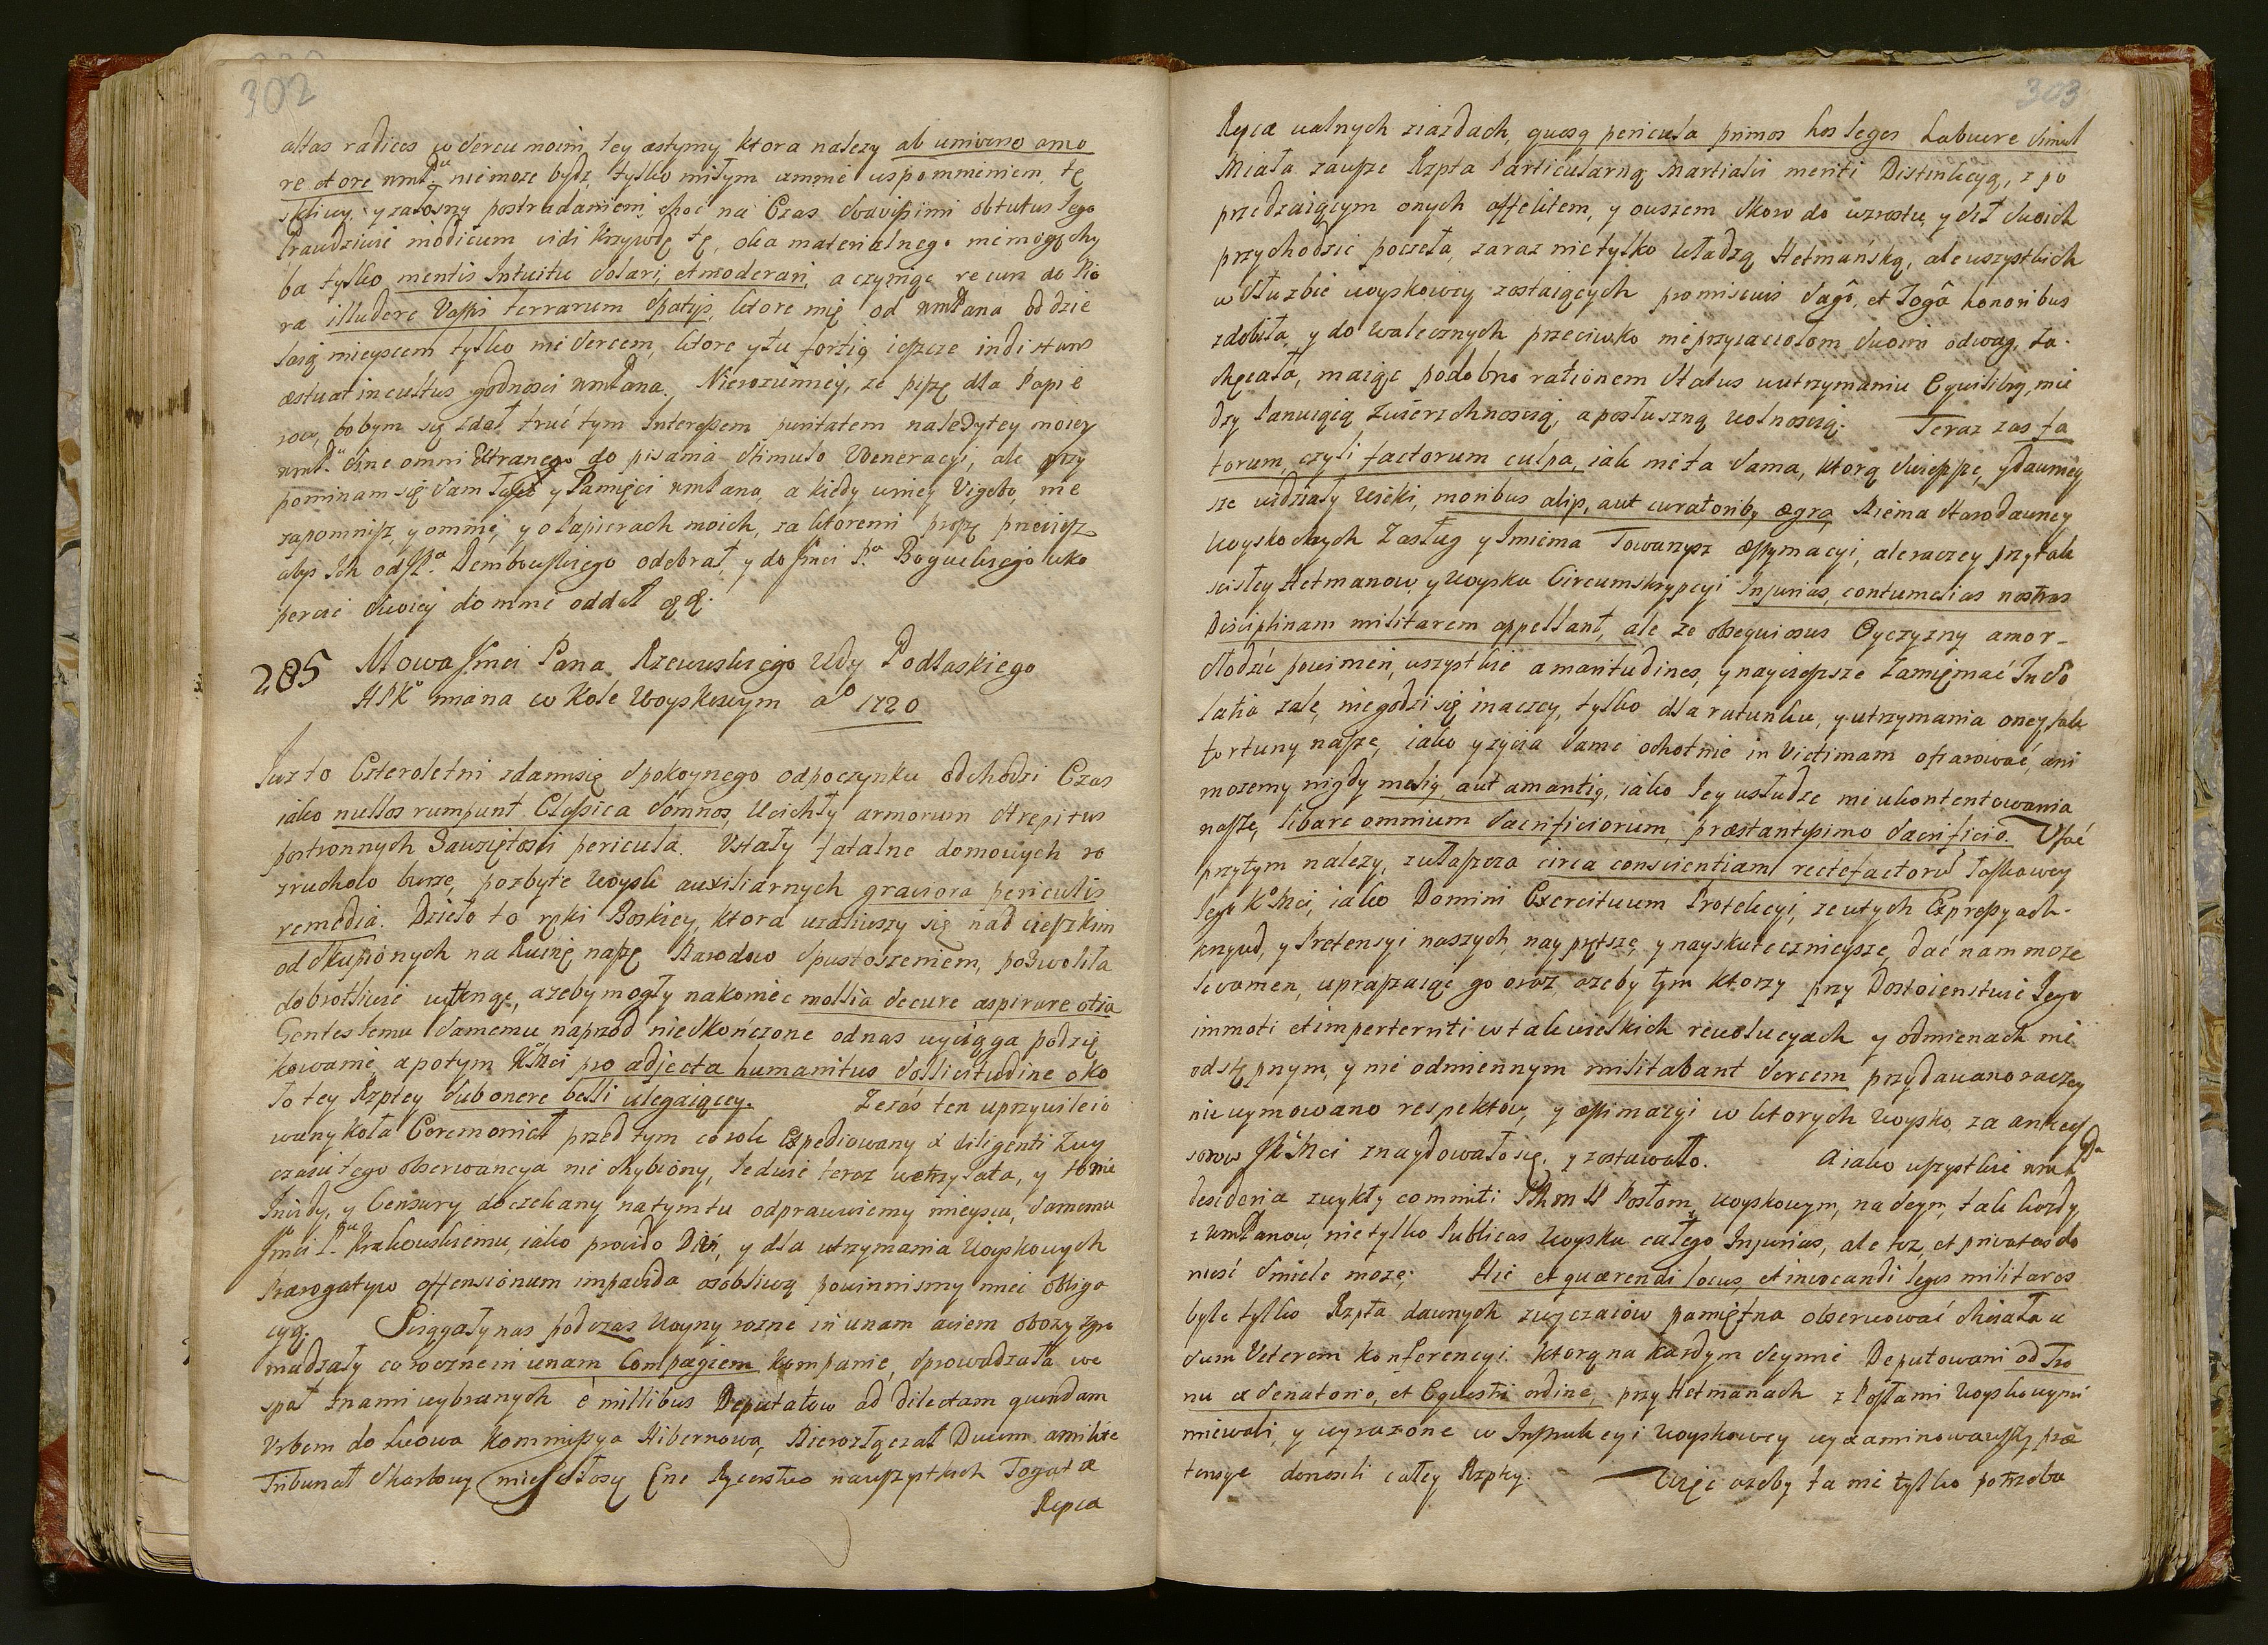 302
altas radices w sercu moim, tey æstymy ktora nalezy ab universo amo
re et ore wmPu niemoze bydz, tylko miłym ammie wspomnieniem, tę
skliwy, y załosny postradaniem choć na Czas suavissimi obtutus Jego
Prawdziwie modicum vidi krzywdę tę, oka materialnego niemogę chy
ba tylko mentis Intuitu solari, et moderari, a czyniąc recurs do Pio
ra illudere Vastis terrarum spatijs, ktore mię od wmPana oddzie
laią mieyscem tylko nie sercem, ktore y tu fortiq ieszcze indistans
æstuat in cultus godnosci wmPana. Nierozumiey, ze piszę dla Papie
row, bobym się zdał truć tym Interessem puritatem nalezytey moiey
wmP.u sine omni Extraneo do pisania stimulo Veneracyi, ale przy
pominam się sam y Pamięci wmPana, a kiedy w niey Vigebo, nie
zapomnisz, y omnie, y o Papierach moich, za ktoremi proszę przeciesz
abys Ich od JP.a Dembowskiego odebrał, y do Jmci P.a Boguckiego w ko
percie swoiey do mnie oddał &c.
285 Mowa Jmci Pana Rzewuskiego Wdy Podlaskiego
HPK° miana w Kole Woyskowym a° 1720
Juz to Czteroletni zdamisię spokoynego odpoczynku odchodzi Czas
iako nullos rumpunt Classica somnos, Ucichły armorum strepitus
postronnych Zawziętosci pericula. Ustały fatalne domowych ro
zruchow burze, pozbyte woysk auxiliarnych graviora periculis
remedia. Dzieło to ręki Boskiey, ktora uzaliwszy się nad cięszkim
od skupionych na Ruinę naszę Narodow spustoszeniem, pozwoliła
dobrotliwie wytchnąć, azeby mogły nakoniec mollia secure aspirare otia
Gentes Jemu samemu naprzod nieskonczone od nas wyciąga podzię
kowanie, a potym KJMci pro adjecta humanitus sollicitudine oko
ło tey Rzptey sub onere belli ulegaiącey. Zezas ten uprzywileio
wany Koła Ceremoniał przed tym co rok Expediowany à diligenti Zwy
czaiu tego obserwancya nie chybiony, ledwie teraz , y to nie
Inuidy, y Censury doczekany na tym tu odprawuiemy mieyscu, samemu
Jmci P.nu Krakowskiemu, iako provido Duci, y dla utrzymania Woyskowych
Prærogatyw offensionum impavido osobliwą powinnismy miei obliga
cyą. Sciągały nas podczas Woyny rozne in unam aciem obozy zgro
madzały corocznie in unam Compagiem Kompanie, sprowadzała we
społ znami wybranych è millibus Deputatow ad dilectam quondam
Urbem do Lwowa Kommissya Hibernowa, Nierozłączał Ducum à milite
Tribunał Skarbowy Cne Rycerstwo na wszystkich Togatæ
Repcæ
303
Repcæ walnych ziazdach, quosq pericula primos hos leges habuere simul
Miała zawsze Rzpta Particularną Martialis meriti Distinkcyą, z po
przedzaiącym onych affektem, y owszem skoro do wzrostu, y sił swoich
przychodzić poczęła, zaraz nie tylko władzą Hetmańską, ale wszystkich
w słuzbie woyskowey zostaiących promiscuis sagô, et Togâ honoribus
zdobiła, y do walecznych przeciwko nieprzyiaciołom swoim odwag, za
chęcała, maiąc podobno rationem status w utrzymaniu Equilibry, mię
dzy Panuiącą Zwierzchnoscią, a posłuszną wolnoscią. Teraz zas fa
torum, czyli factorum culpa, iak nieta sama, ktorą swiezsze, y dawniey
sze widziały wieki, moribus alijs, aut curatoribq ægra Niema starodawney
Woyskowych Zasług y Imiema Towarzysz æstymacyi, ale raczey przytak
scisłey Hetmanow, y Woyska Circumskrypcyi Injurias, contumelias nostras
Disciplinam militarem appellant, ale ze obsequiosus Oyczyzny amor
słodzić powinien, wszystkie amaritudines, y nayciezsze Consolatia
zale, niegodzi się inaczey, tylko dla ratunku, y utrzymania oney, tak
fortuny nasze, iako y zycia same ochotnie in Victimam ofiarować, ani
mozemy nigdy melius, aut amantius, iako Jey usłudze nieukontentowania
nasze, libare omnium sacrificiorum, præstantissimo sacrificio. Ufać
przytym nalezy, zwłaszcza circa conscientiam recte factorū Łaskawey
Jego K°Mci, iako Domini Exercituum Protekcyi, ze w tych Expressyach
krzywd, y Pretensyi naszych, nayprętsze, y nayskutecznieysze, dać nam moze
levamen, upraszaiąc go oraz azeby tym ktorzy przy Dostoienstwie Jego
immoti et imperterriti w takwielkich rewolucyach y odmienach nie
odstępnym, y nie odmiennym militabant sercem przydawano raczey
nie uymowano respektow, y æstimacyi w ktorych woysko, za antecef
sorow JK°Mci znaydowało się, y zostawało. A iako wszystkie wmPda
desideria zwykły comitti Posłom woyskowym, na seym, tak kozdy
z WmPanow, nie tylko Publicas woyska całego Injurias, ale tez, et privatas do
niesć smiele moze; Hic et quærendi locus, et invocandi leges militares
byle tylko Rzpta dawnych zwyczaiow pamiętna observować chciała u
sum Veterem Konferencyi. Ktorą na kazdym seymie Deputowani od Tro
nu à senatorio, et Equestri ordine, przy Hetmanach z Posłami Woyskowymi
miewali, y wyrazone w Instrukcyi woyskowey wyexaminowawszy præ
tensye donosili całey Rzptey. Więc azeby ta nie tylko potrzeba